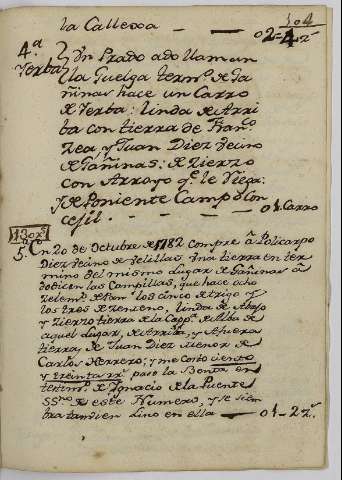 104
la Callexa — — 02-4..zs
4.ª Un Prado ado llaman
Yerba la Guelga term.º de Ga
ñinas hace un Carro
de Yerba: linda de Arri
ba con tierra de Fran.co
Zea, y Juan Diez Vecino
de Gañinas: de Cierzo
con Arroyo q.e le Riega:
y de Poniente Campo Con
cejil. — — — 01. Carro
130 r.s
5.º En 20 de Octubre de 1782 compre â Policarpo
Diez Vecino de Velillas Una tierra en ter
mino del mismo lugar de Gañinas â
do dicen las Campillas, que hace ocho
zelem.s de Pan los cinco de trigo y
los tres de Zenteno, linda de Abajo
y Cierzo tierra de la Capp.a de Alba de
aquel lugar, de Arriba, y Afuera
tierra, de Juan Diez menor de
Carlos Herrero; y me costo ciento
y treinta r.s paso la Venta en
testim.º de Ignacio de la Puente
SS.no de este Numero, y se siem
bra tambien Lino en ella — 01-2zs.